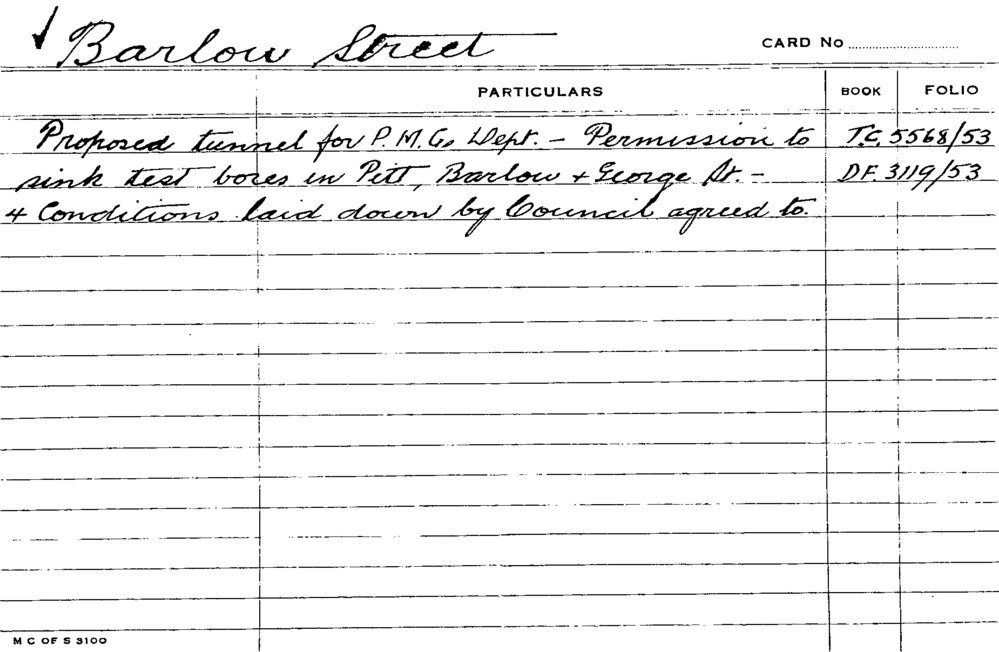 Barlow Street
CARD No
PARTICULARS BOOK FOLIO
Proposed tunnel for P.M.G. Dept. – Permission to T.C. 5568/53
sink test bores in Pitt, Barlow + George St. – D.F. 3119/53
+ Conditions laid down by Council agreed to.
M C OF S 3100